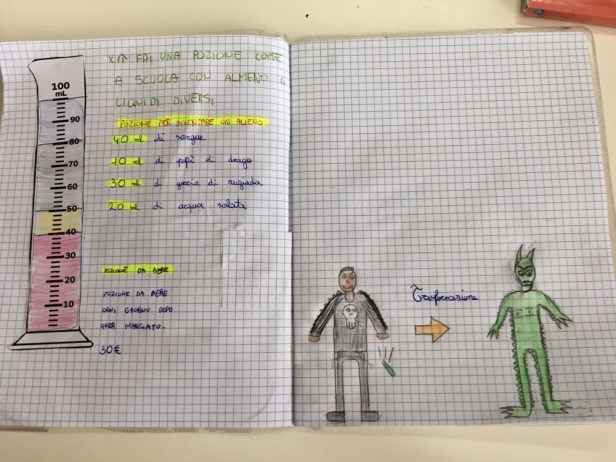 100
mL
90
80
70
60
50
40
30
20
10
X ↑ FAI UNA POZIONE COME
A SCUOLA CON ALMENO 4
LIQUIDI DIVERSI
POZIONE PER DIVENTARE UN ALIENO
40 ml di sangue
10 ml di pipì di drago
30 ml di goccie di rugiada
20 ml di acqua salata
POZIONE DA BERE
POZIONE DA BERE
OGNI GIORNO DOPO
AVER MANGIATO.
30€
Trasformazione